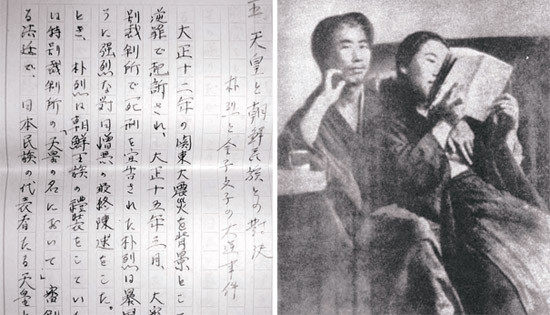 五 天皇と朝鮮民族との対決
朴烈と金子文子の大逆事件
大正十二年の関東大震災を背景とし
逆罪で起訴され、大正十五年三月、大審
別裁判所で死刑を宣告された朴烈は暴風
うに強烈な対日憎悪の最終陳述をした。
とき、朴烈は朝鮮王族の禮装をしてい
は特別裁判所の「天皇の名において」審判
る法廷で、日本民族の代表者たる天皇と